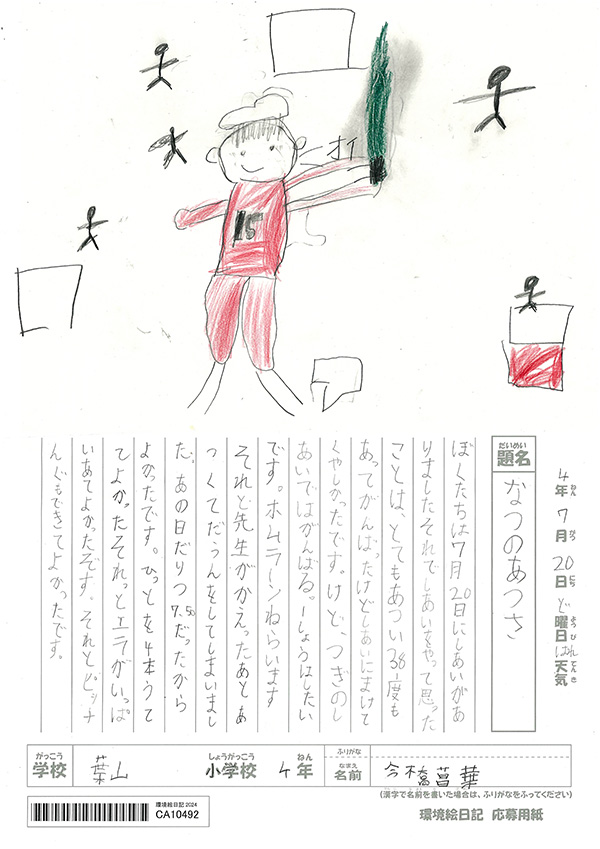 オイ
15
4年ねん 7月がつ 20日にち ど曜日ようび はれ天気てんき
題名だいめい なつのあつさ
ぼくたちは7月20日にしあいがあ
りましたそれでしあいをやって思った
ことは、とてもあつい38度も
あってがんばったけどしあいにまけて
くやしかったです。けど、つぎのし
あいではがんばる。一しょうはしたい
です。ホムランねらいます
それと先生がかえったあとあ
つくてだうんをしてしまいまし
た。あの日だりつ7.50だったから
よかったです。ひっとを4本うて
てよかったそれっとエラがいっぱ
いあてよかったぞす。それとピッチ
んぐもできてよかったです。
学校がっこう 葉山 小学校しょうがっこう 4年ねん 名前なまえ ふりがな 今橋菖華
(漢字で名前を書いた場合は、ふりがなをふってください)
環境絵日記2024
CA10492
環境絵日記 応募用紙